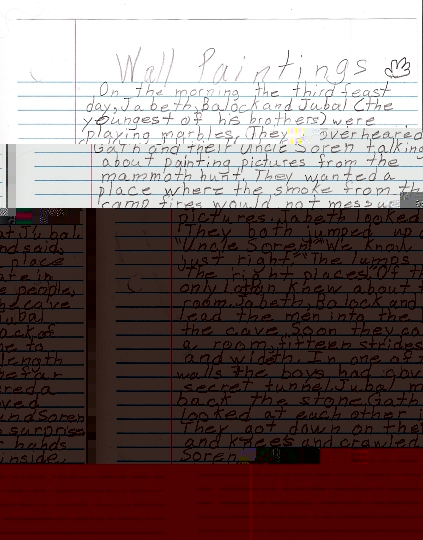 Wall Paintings
On the morning the third feast
day, Jabeth, Balock and Jubal (the
youngest of his brothers) were
playing marbles. They overheard
Gath and their uncle Soren talking
about painting pictures from the
mammoth hunt. They wanted a
place where the smoke from the
camp fires would not
pictures. Jabeth looked
They both jumped up
"Uncle Soren!" "We know
just right" "The lumps
the right places." Of
only knew about
room. Jabeth, Balock and
lead the men into the
the cave. Soon they
a room, fifteen strides
and width. In one of
walls the boys had
secret tunnel. Jubal
back the stone. Gath
looked at each other
They got down on
and knees and crawled
Soren
at Jubal
nd said,
place
are in
e people,
the cave
Jubal
back of
me to
length
red a
oved
und Soren
surprise
hands
inside.